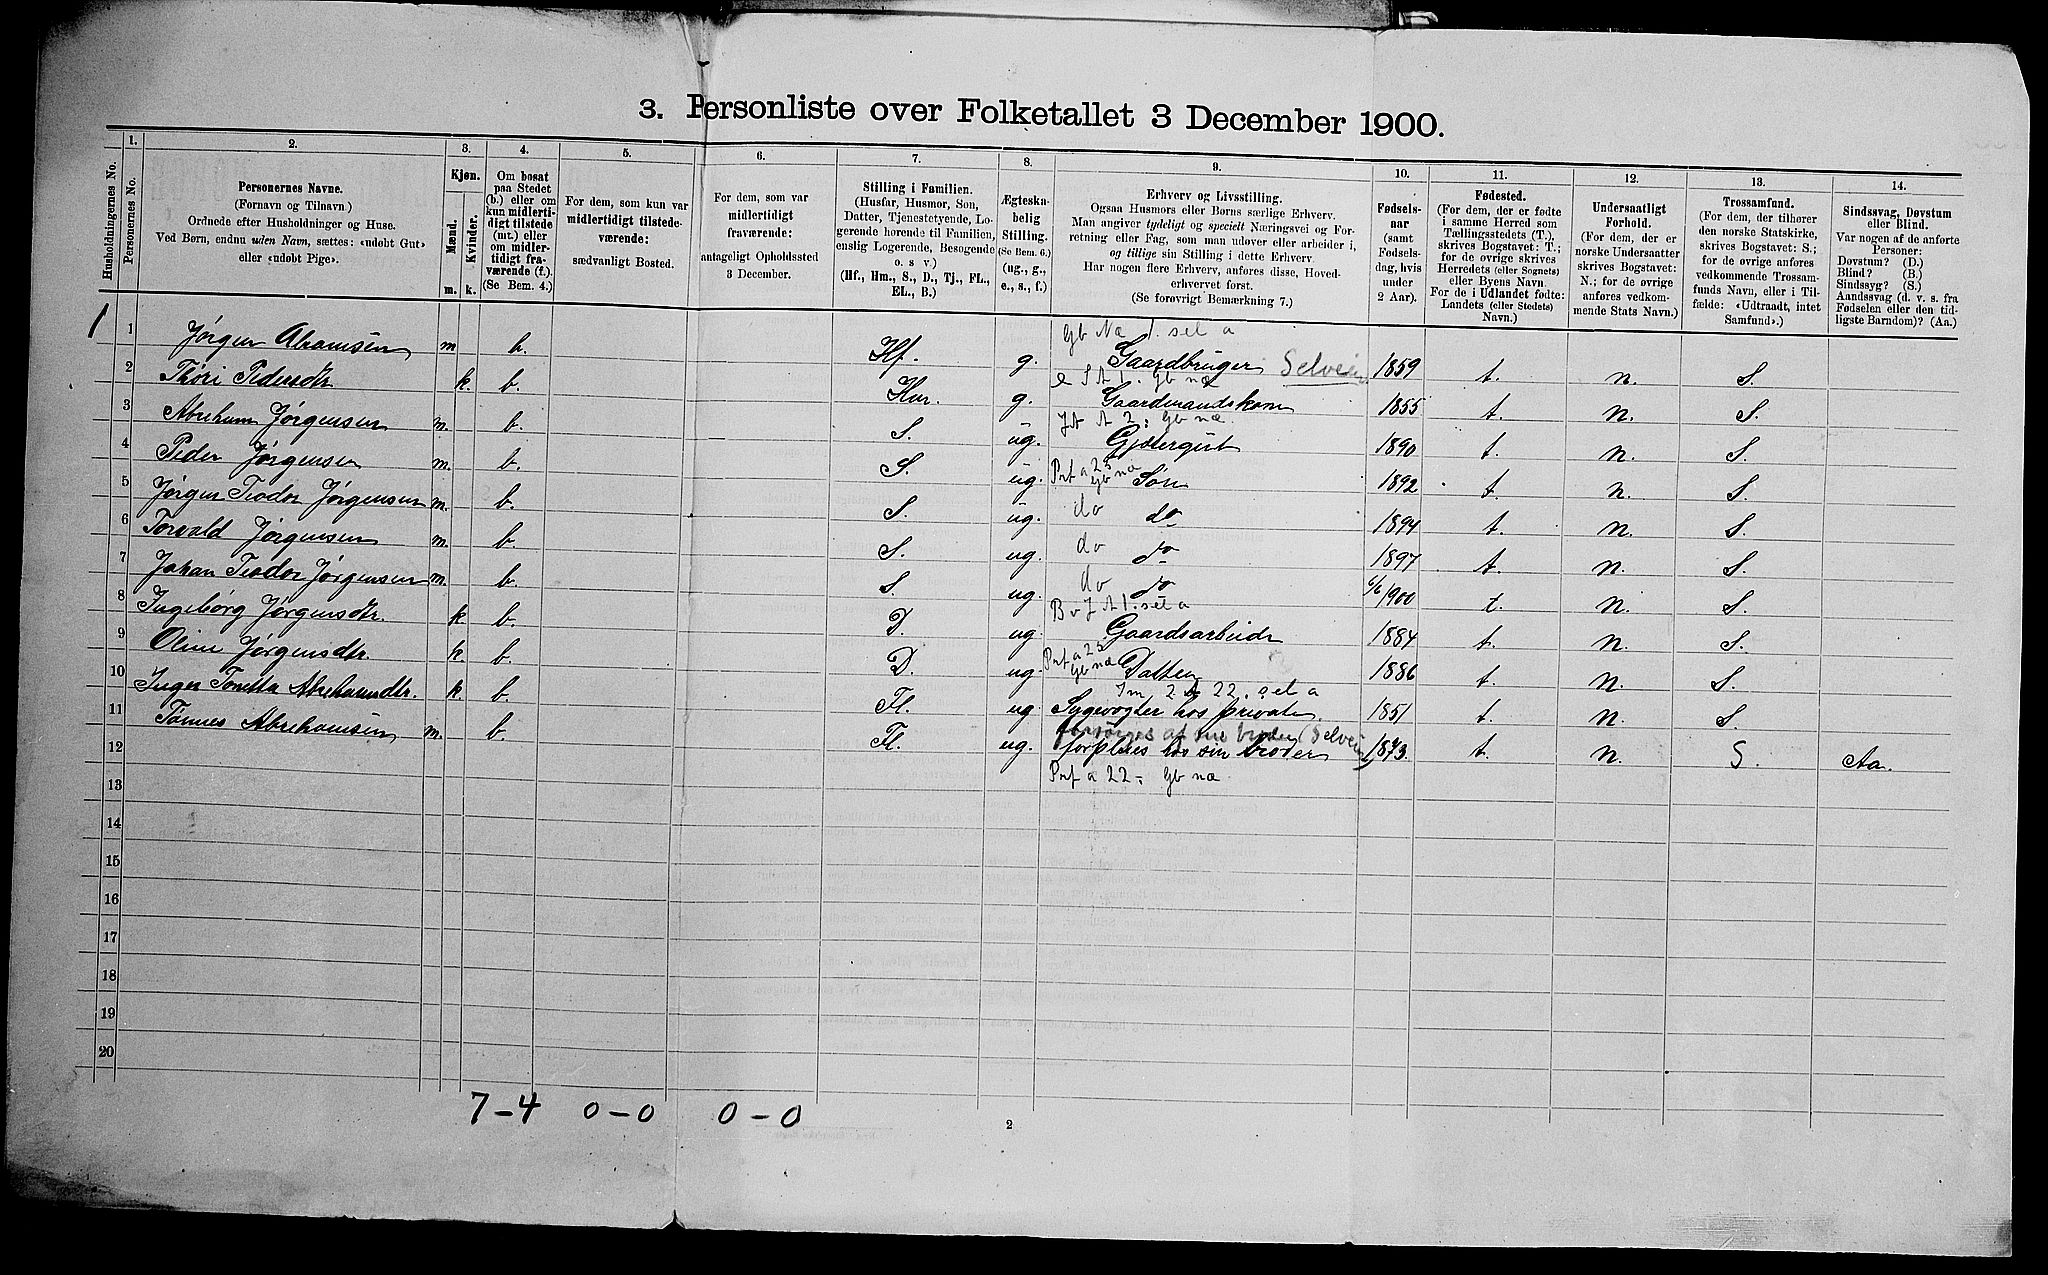 3. Personliste over Folketallet 3 December 1900.
Husholdningernes No.
1. Personernes No.
2. Personernes Navne. (Fornavn og Tilnavn.) Ordnede efter Husholdninger og Huse. Ved Børn, endnu uden Navn, sættes: «udøbt Gut» eller «udøbt Pige».
3. Kjøn. Mænd. m. Kvinder. k.
4. Om bosat paa Stedet (b.) eller om kun midlertidigt tilstede (mt.) eller om midlertidigt fraværende (f.). (Se Bem. 4.)
5. For dem, som kun var midlertidigt tilstedeværende: sædvanligt Bosted.
6. For dem, som var midlertidigt fraværende: antageligt Opholdssted 3 December.
7. Stilling i Familien. (Husfar, Husmor, Søn, Datter, Tjenestetyende, Logerende hørende til Familien, enslig Logerende, Besøgende o. s. v.) (Hf., Hm., S., D., Tj., FL., EL., B.)
8. Ægteskabelig Stilling. (Se Bem. 6.) (ug., g., e., s., f.)
9. Erhverv og Livsstilling. Ogsaa Husmors eller Børns særlige Erhverv. Man angiver tydeligt og specielt Næringsvei og Forretning eller Fag, som man udøver eller arbeider i, og tillige sin Stilling i dette Erhverv. Har nogen flere Erhverv, anføres disse, Hovederhvervet først. (Se forøvrigt Bemærkning 7.)
10. Fødselsaar (samt Fødselsdag, hvis under 2 Aar).
11. Fødested. (For dem, der er fødte i samme Herred som Tællingsstedets (T.), skrives Bogstavet: T.; for de øvrige skrives Herredets (eller Sognets) eller Byens Navn. For de i Udlandet fødte: Landets (eller Stedets) Navn.)
12. Undersaatligt Forhold. (For dem, der er norske Undersaatter skrives Bogstavet: N.; for de øvrige anføres vedkommende Stats Navn.)
13. Trossamfund. (For dem, der tilhører den norske Statskirke, skrives Bogstavet: S.; for de øvrige anføres vedkommende Trossamfunds Navn, eller i Tilfælde: «Udtraadt, intet Samfund».)
14. Sindssvag, Døvstum eller Blind. Var nogen af de anførte Personer: Døvstum? (D.) Blind? (B.) Sindssyg? (S.) Aandssvag (d. v. s. fra Fødselen eller den tidligste Barndom)? (Aa.)
Gb Na 1. sel a
1 1 Jørgen Abramsen m b. Hf. g. Gaardbruger Selveier 1859 t. n. S.
e St 1. Gb næ
2 Thori Pedersdtr k. b. Hm. g. Gaardmandskone 1855 t. n. S.
Jt A 2: Gb næ.
3 Abreham Jørgensen m. b. S. ug. Gjætergut 1890 t. n. S.
Prf a 25 Gb næ
4 Peder Jørgensen m. b. S. ug. Søn 1892 t. n. S.
do
5 Jørgen Teodor Jørgensen m. b. S. ug. do 1894 t. n. S.
do
6 Torvald Jørgensen m. b. S. ug. do 1897 t. n. S.
do
7 Johan Teodor Jørgensen m. b. S. ug. do 6/6 1900 t. n. S.
B v J A 1. sel a
8 Ingebørg Jørgensdtr. k b. D. ug. Gaardsarbeide 1884 t. n. S.
Prf a 25 Gb næ
9 Oline Jørgensdtr. k. b. D. ug. Datter 1886 t. n. S.
Im 2 22. sel a
10 Inger Tonetta Abrehamdtr. k. b. Fl. ug Sygevogter hos private. 1851 t. n. S.
forsørges af sin broder (Selveier)
11 Tønnes Abrehamsen m. b. Fl. ug. forpleies hos sin broder 1873. t. n. S Aa.
12 Prf a 22 - Gb næ
13
14
15
16
17
18
19
20
7-4 0-0 0-0
2